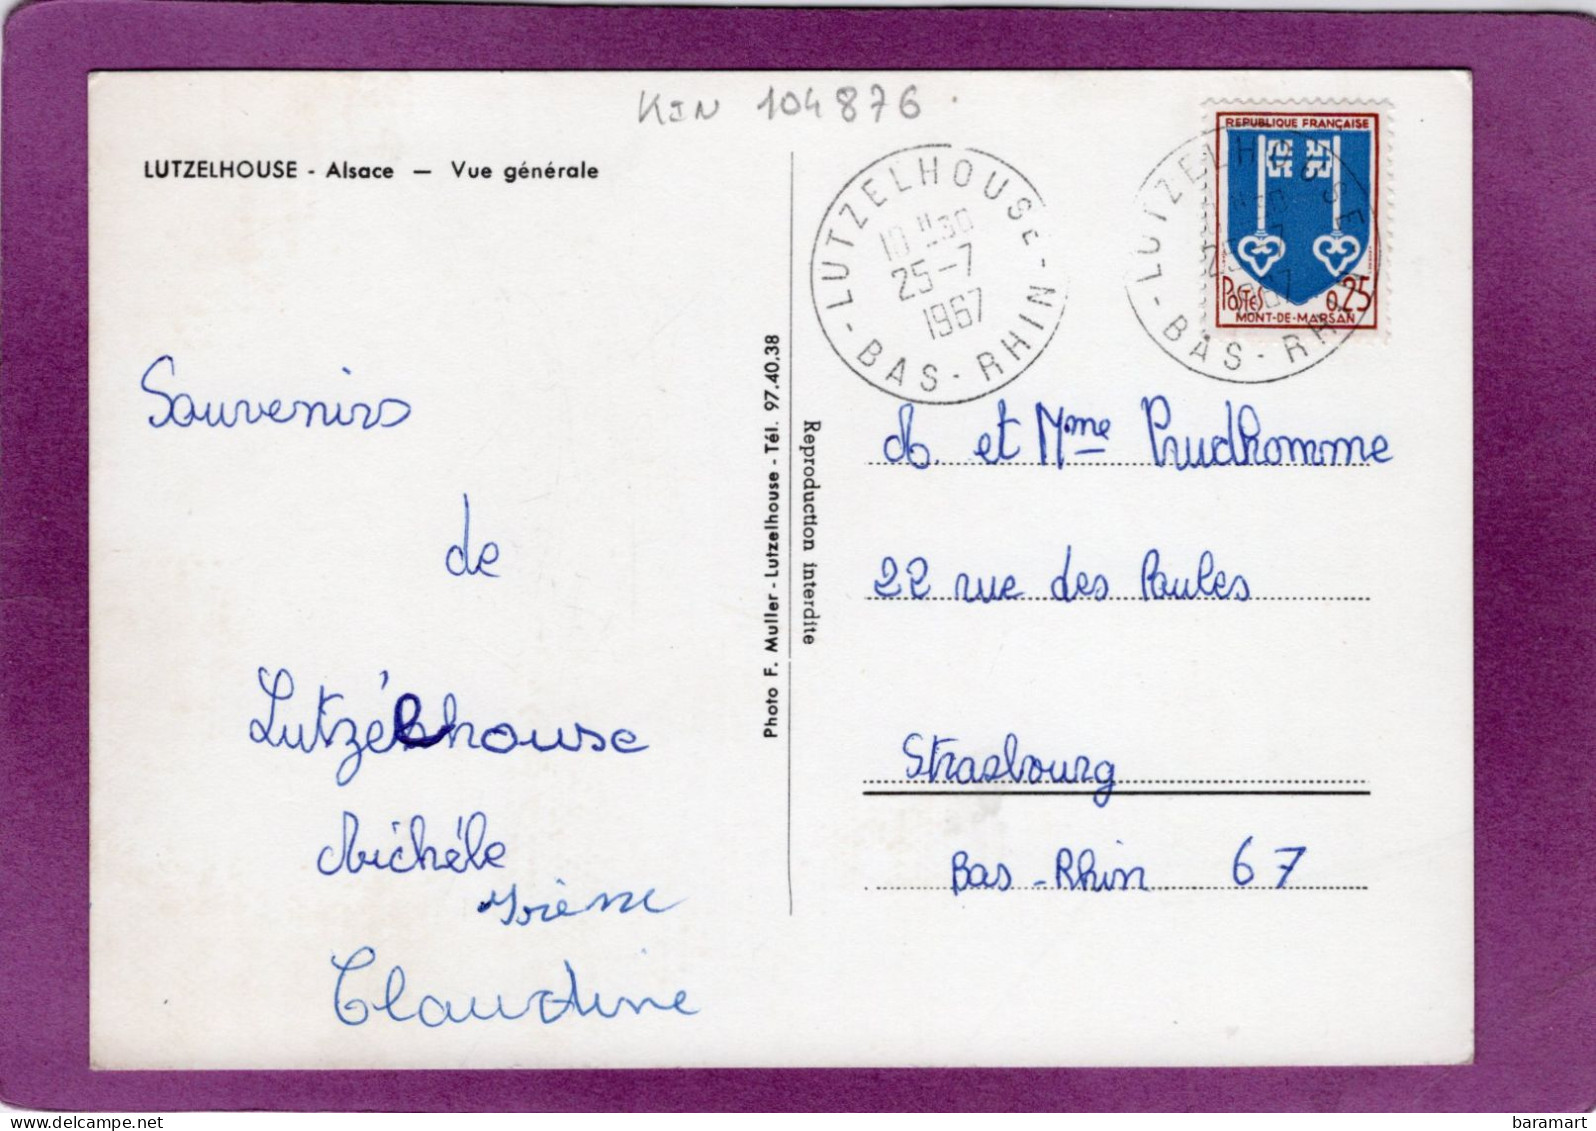 KIN 104876
LUTZELHOUSE - Alsace — Vue générale
Souvenirs
de
Lutzélhouse
Michéle
Irène
Claudine
Photo F. Muller - Lutzelhouse - Tél. 97.40.38
Reproduction interdite
LUTZELHOUSE
10 H30
25-7
1967
- BAS - RHIN -
REPUBLIQUE FRANÇAISE
POSTES 0,25
MONT-DE-MARSAN
LUTZELHOUSE
10 H30
25-7
1967
- BAS - RHIN
M. et Mme Prudhomme
22 rue des Paules
Strasbourg
Bas-Rhin 67
baramart